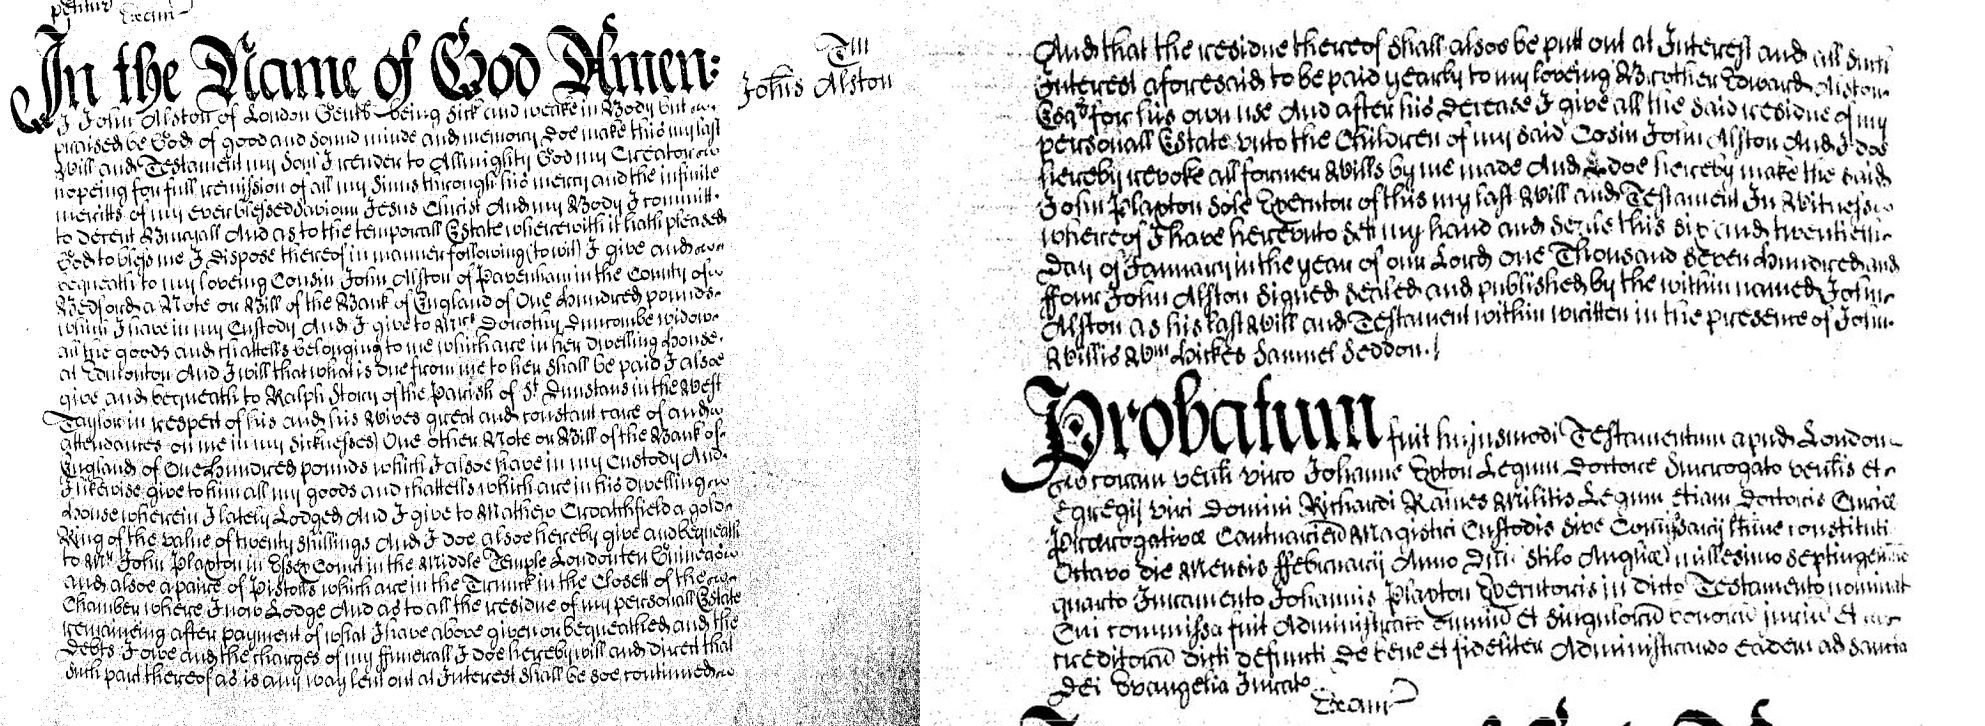 Exam
In the Name of God Amen:
I John Alston of London Gentl being sick and weake in Body but
praised be God of good and sound minde and memory doe make this my last
Will and Testament my Soul I render to Allmighty God my Creator
hopeing for full remission of all my Sinns through his mercy and the infinite
meritts of my ever blessed Saviour Jesus Christ And my Body I committ
to decent Buryall And as to the temporall Estate wherewith it hath pleased
God to bless me I dispose thereof in manner following (to wit) I give and
bequeath to my loveing Cousin John Alston of Pavenham in the County of
Bedford a Note or Bill of the Bank of England of One hundred pounds
which I have in my Custody And I give to Mrs Dorothy Duncombe widow
all the goods and chattells belonging to me which are in her dwelling house
at Edmonton And I will that what is due from me to her shall be paid I alsoe
give and bequeath to Ralph Story of the Parish of St Dunstans in the West
Taylor in respect of his and his Wives great and constant care of and
attendances on me in my sicknesses One other Note or Bill of the Bank of
England of One hundred pounds which I alsoe have in my Custody And
I likewise give to him all my goods and chattells which are in his dwelling
house wherein I lately Lodged And I give to Mathew Croathfield a gold
Ring of the value of twenty shillings And I doe alsoe hereby give and bequeath
to Mr John Plaxton in Essex Court in the Middle Temple London ten Guineas
and alsoe a paire of Pistolls which are in the Trunck in the Closett of the
Chamber where I now Lodge And as to all the residue of my personall Estate
remaineing after payment of what I have above given or bequeathed and the
Debts I owe and the charges of my ffunerall I doe hereby will and direct that
such part thereof as is any way lent out at Interest shall be soe continued
Tm
Johis Alston
And that the residue thereof shall alsoe be putt out at Interest and all such
Interest aforesaid to be paid yearly to my loveing Brother Edward Alston
Esqr for his own use And after his decease I give all the said residue of my
personall Estate unto the Children of my said Cosin John Alston And I doe
hereby revoke all former Wills by me made And I doe hereby make the said
John Plaxton sole Executor of this my last Will and Testament In Witnesse
whereof I have hereunto sett my hand and seale this six and twentieth
day of January in the year of our Lord One Thousand seven hundred and
ffour John Alston Signed sealed and published by the within named John
Alston as his last Will and Testament within written in the presence of John
Willis Wm Hickes Samuel Seddon.
Probatum fuit hujusmodi Testamentum apud London
coram venli viro Johanne Exton Legum Doctore Surrogato venlis et
Egregij viri Domini Richardi Raines Militis Legum etiam Doctoris Curiæ
Prærogativæ Cantuarien Magistri Custodis sive Comissarij ltime constituti
Octavo die Mensis ffebruarij Anno Dni Stilo Angliæ millesimo septingen
quarto Juramento Johannis Plaxton Executoris in dicto Testamento nominat
Cui commissa fuit Administratio omniu et singulorũ bonorũ juriu et
creditorũ dicti defuncti De bene et fideliter Administrando eadem ad sancta
Dei Evangelia Jurat
Exam